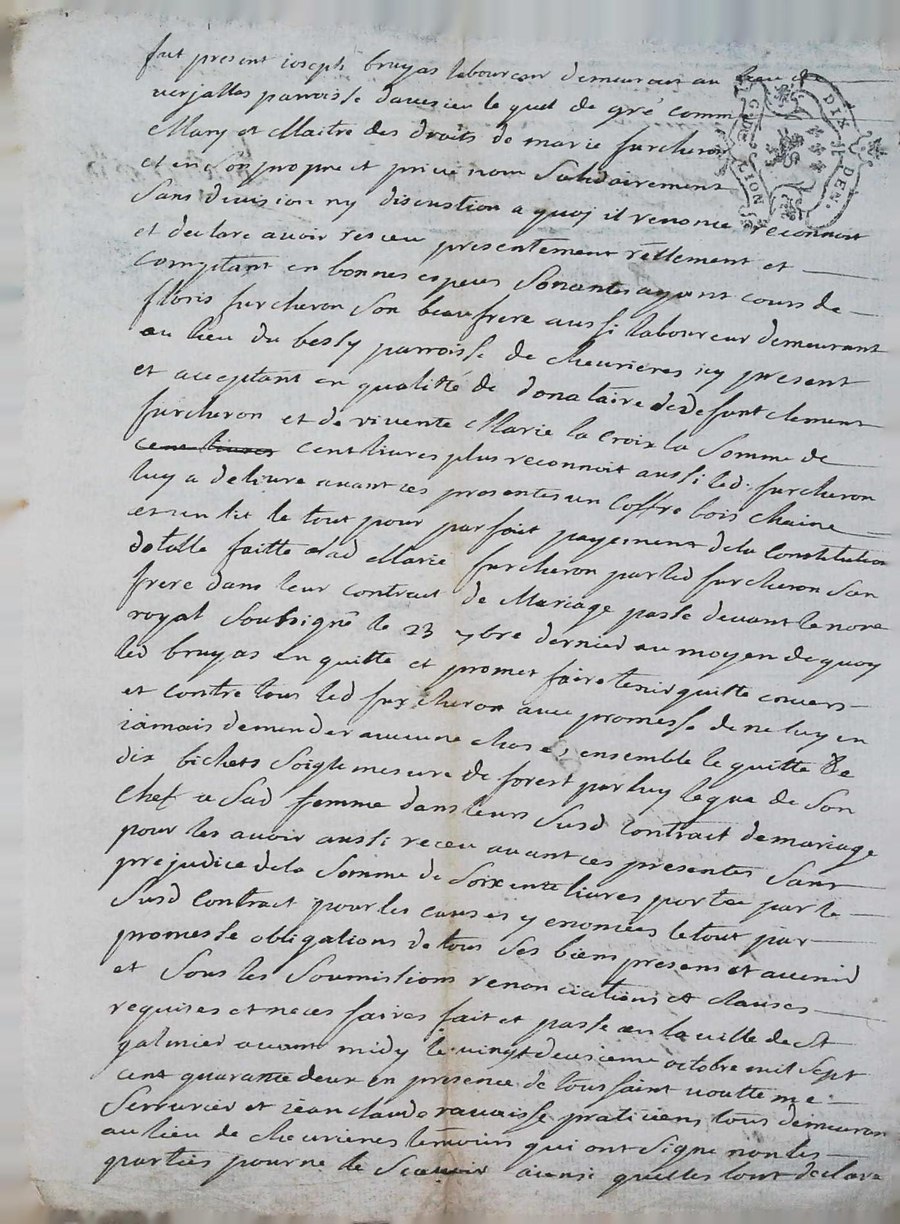 fut present ioseph bruyas laboureur demeurant au lieu de
verjalles parroisse daveisieu le quel de gré comme
Mary et Maitre des droits de marie furcheron
et en son propre et privé nom Solidairement
Sans division ny discustion a quoy il renonce reconnoit
et declare avoir resceu presentement réellement et
Comptant en bonnes especes Sonantes ayant cours de
floris furcheron Son beaufrere aussi laboureur demeurant
au lieu du bessy parroisse de cheurieres icy present
et acceptant en qualitté de donataire de defunt clement
furcheron et de vivente Marie la Croix la Somme de
cent livres cent livres plus reconnoit aussi led. furcheron
luy a delivré avant ces presentes un Coffre bois chaine
et un lit le tout pour parfait payement dela Constitution
dotalle faitte a lad Marie furcheron par led furcheron Son
frere dans leur contrat de Mariage passe devant le nore
royal Soubsigné le 23 7bre dernier au moyen de quoy
led bruyas en quitte et promet faire tenir quitte envers
et contre tous led furcheron avec promesse de ne luy en
iamais demender aucune chose, ensemble le quitte de
dix bichets Soigle mesure de forest par luy legué de Son
Chef a Sad femme dans leurs Susd contrait de mariage
pour les avoir aussi receu avant ces presentes Sans
prejudice dela Somme de Soixente livres portée par le
Susd Contract pour les causes y enoncées le tout par
promesse obligations de tous Ses biens presens et avenir
et Sous les Soumistions renonciations et clauses
requises et necessaires fait et passe en la ville de St
galmier avant midy le vingt deusieme octobre mil Sept
cent quarante deux en presence de toussaint
Serrurier et iean claude ravaisse praticiens tous demeuran
au lieu de cheurieres temoins qui ont Signe non les
parties pour ne le Scavoir ainsi quelles lont declaré
G. DE LION
DIX DEN.